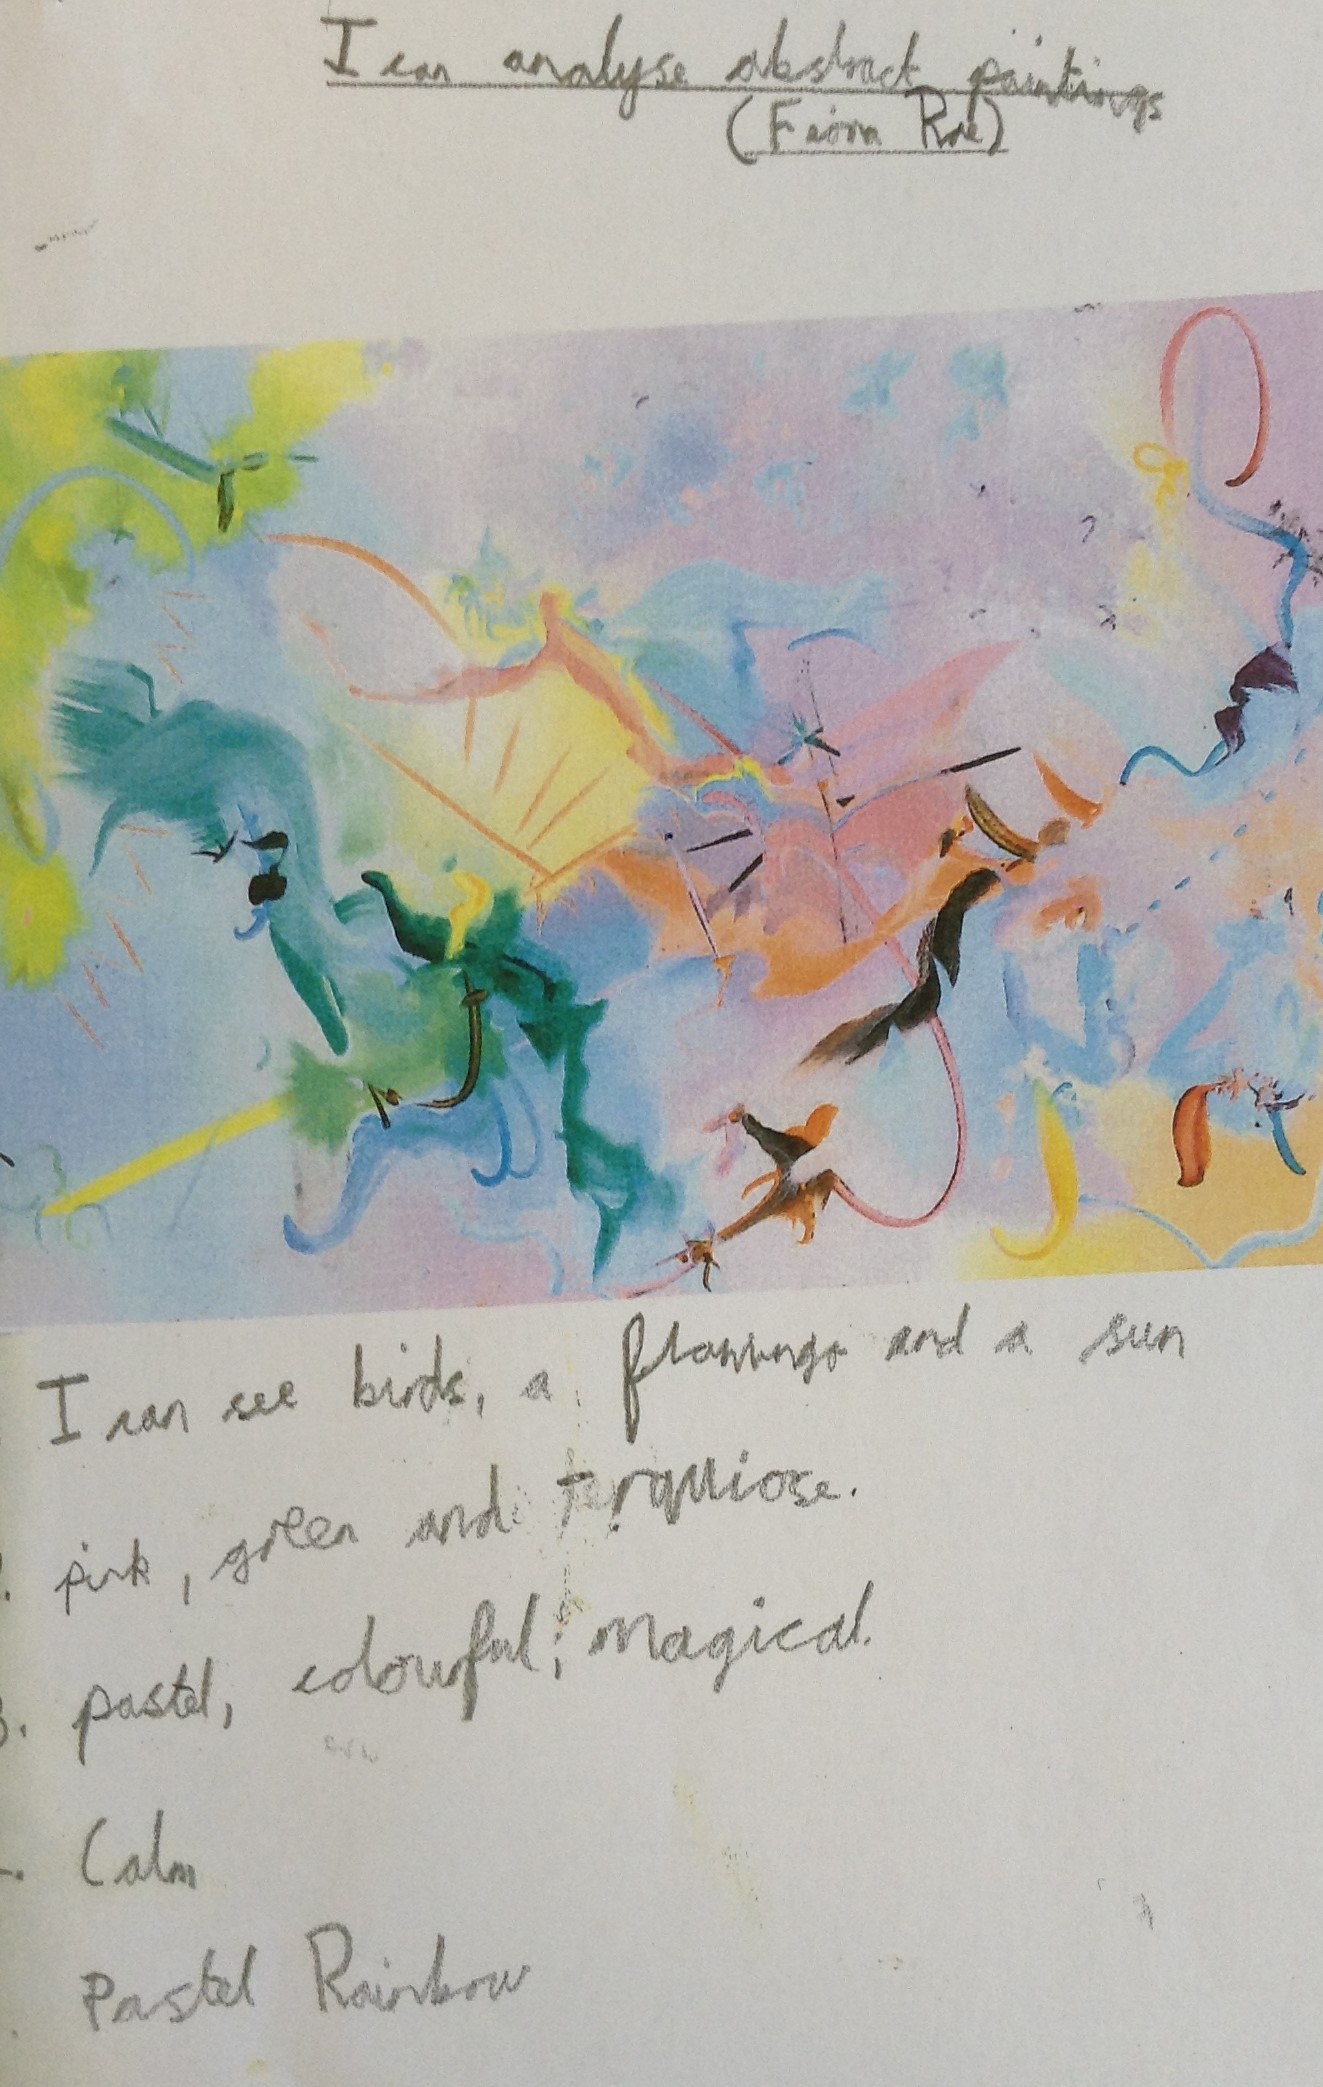 I can analyse abstract paintings
(Feiona Rae)
I can see birds, a flamingo and a sun
2. pink, green and terquiose.
3. pastel, colourful, magical.
Calm
Pastel Rainbow